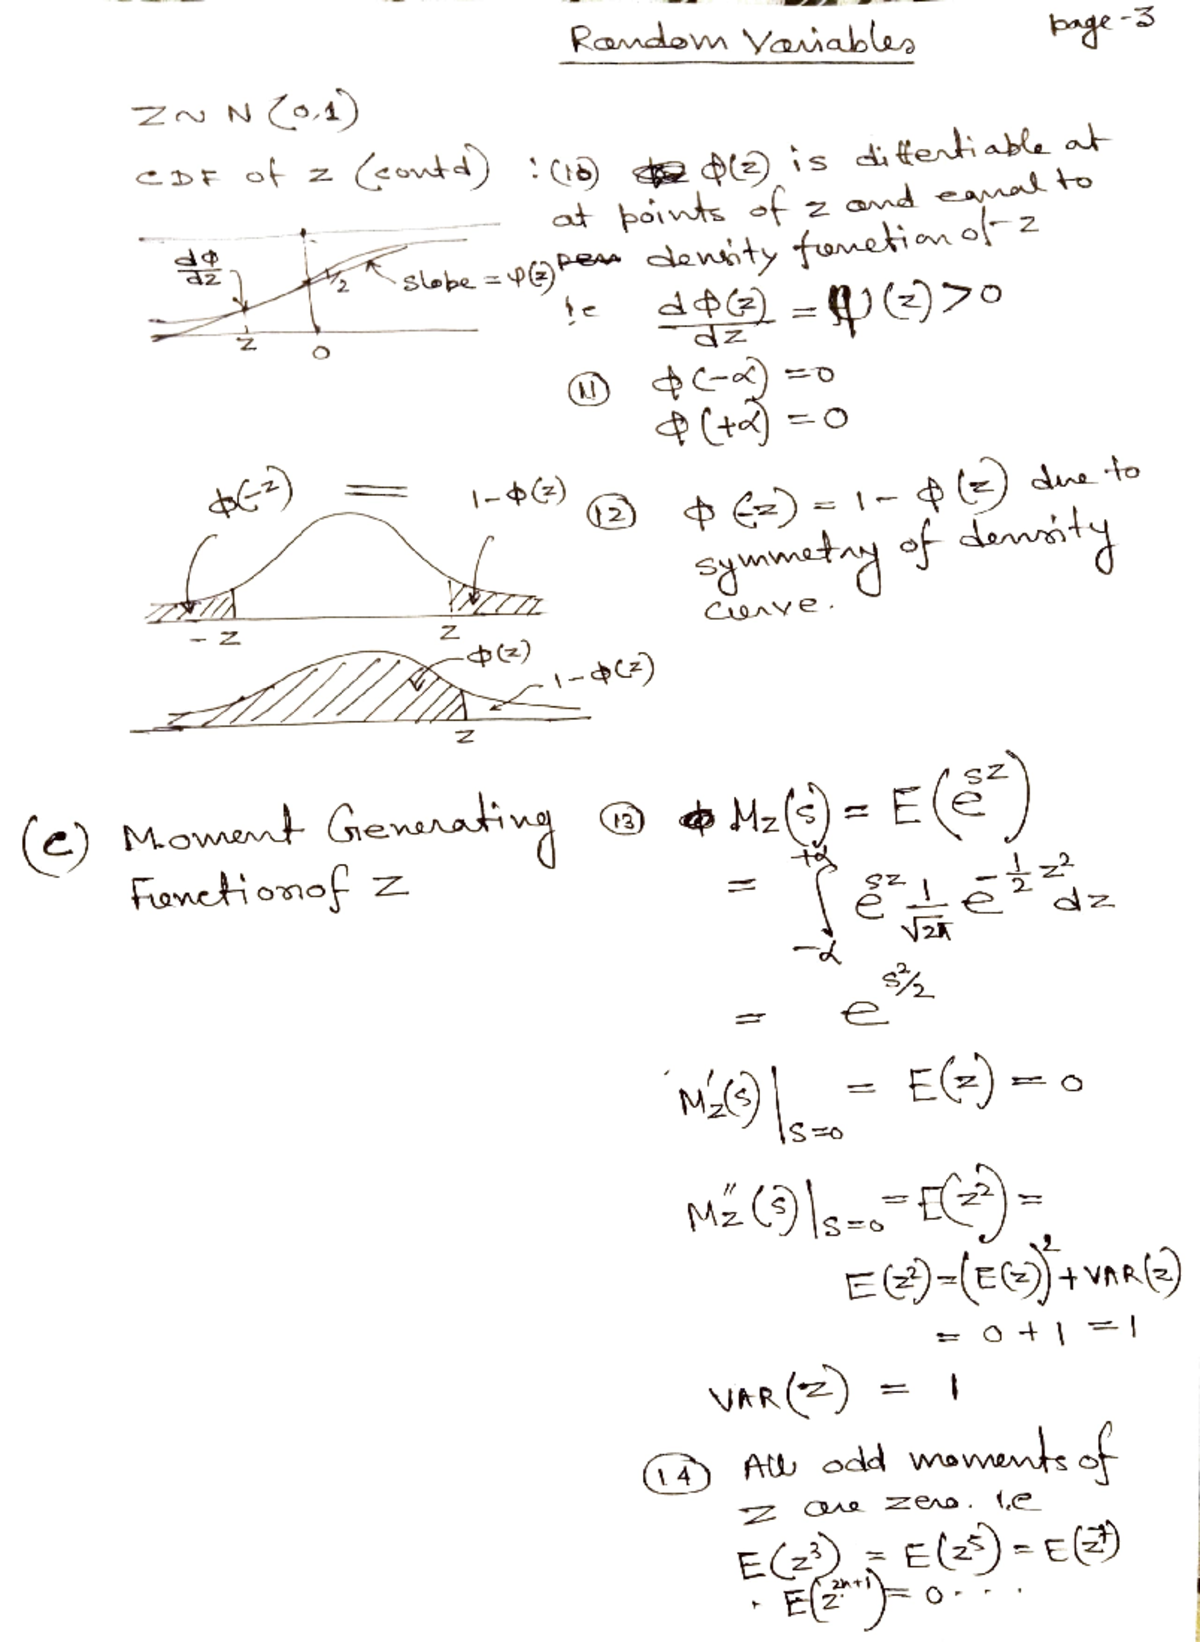 Random Variables
page-3
Z ~ N (0,1)
CDF of z (contd) : (10) ϕ(z) is diffentiable at
at points of z and equal to
density function of z
dϕ
dz
1/2
slope = φ(z)
z
0
ie dϕ(z)/dz = φ(z) > 0
(11) ϕ(-α) = 0
ϕ(+α) = 0
ϕ(-z) = 1-ϕ(z)
(12) ϕ(-z) = 1 - ϕ(z) due to
symmetry of density
curve.
-z
z
ϕ(z)
1-ϕ(z)
z
(e) Moment Generating
Function of z
(13) Mz(s) = E(e^sz)
= ∫_-α^+α e^sz 1/√2π e^-1/2 z² dz
= e^s²/2
M'z(s)|s=0 = E(z) = 0
M''z(s)|s=0 = E(z²) =
E(z²) = (E(z))² + VAR(z)
= 0 + 1 = 1
VAR(z) = 1
(14) All odd moments of
z are zero. i.e
E(z³) = E(z⁵) = E(z⁷)
. E(z^2n+1) = 0 . . .